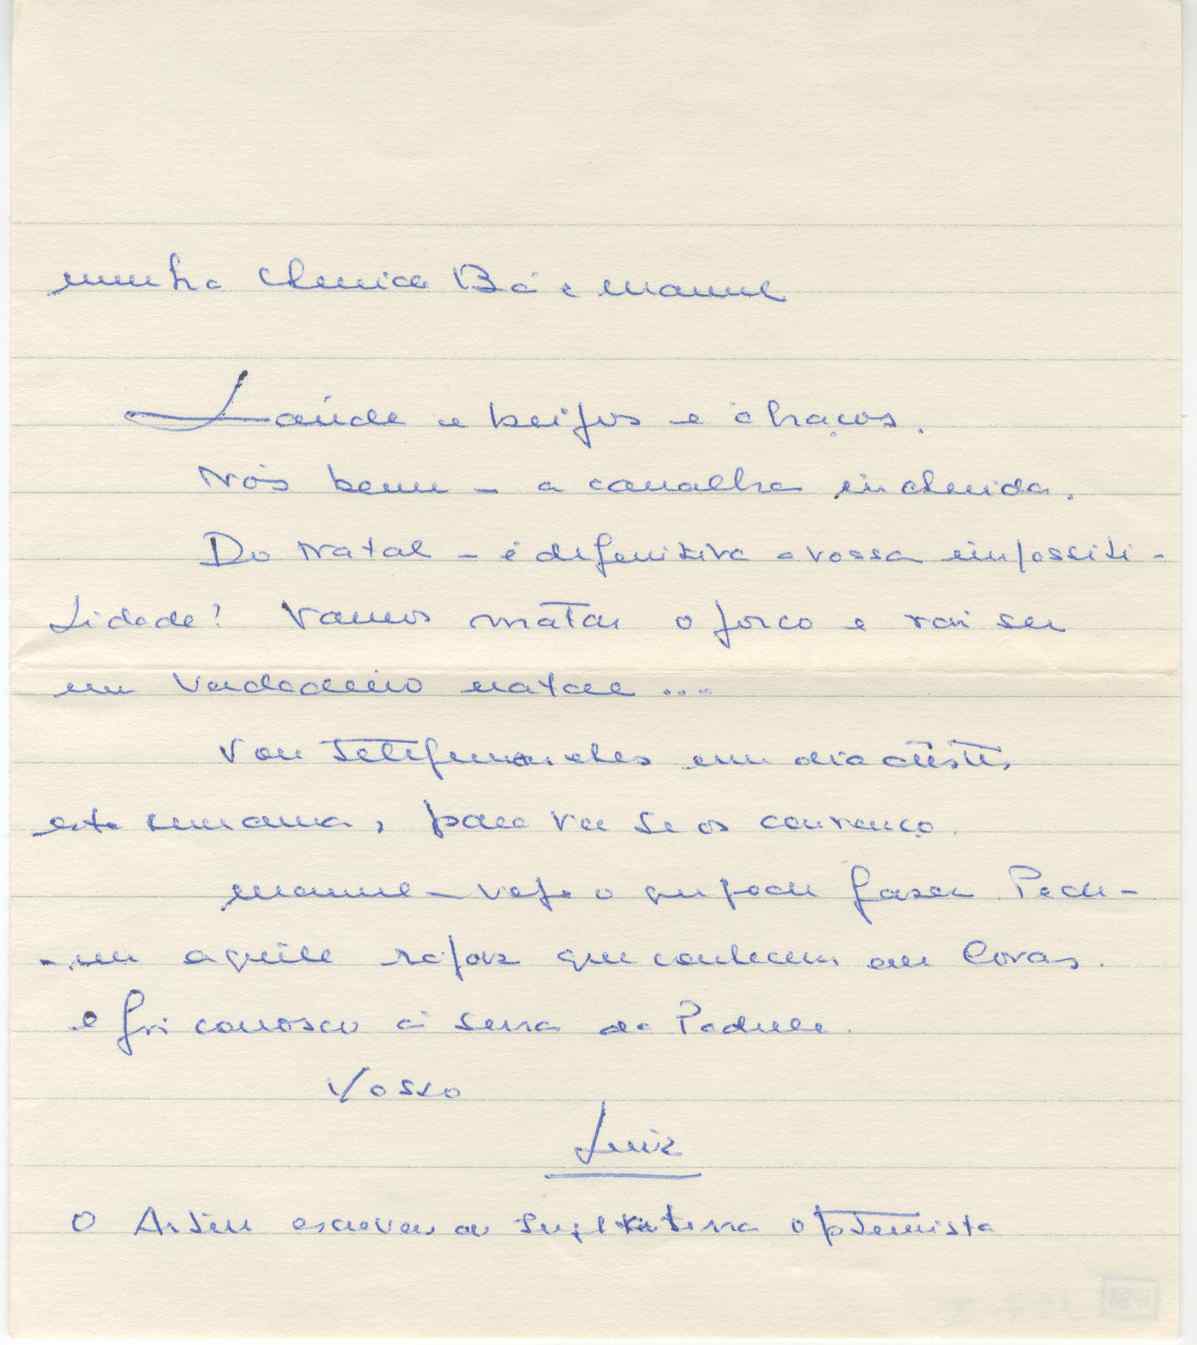 minha
Bá e Manuel
Saúde e beijos e abraços.
Nós bem - a canalha
Do Natal - é defenitiva a vossa impossibi-
lidade? Vamos matar o porco e vai ser
um verdadeiro natal ...
Vou telefonar-lhes um dia dêstes,
esta semana, para ver se os convenço.
Manuel - veja o que pode fazer. Pedi-
aquele rapaz que conhecem em Covas.
e foi conosco à serra da Padrela.
Vosso
Luiz
O escreveu de Inglaterra optemista